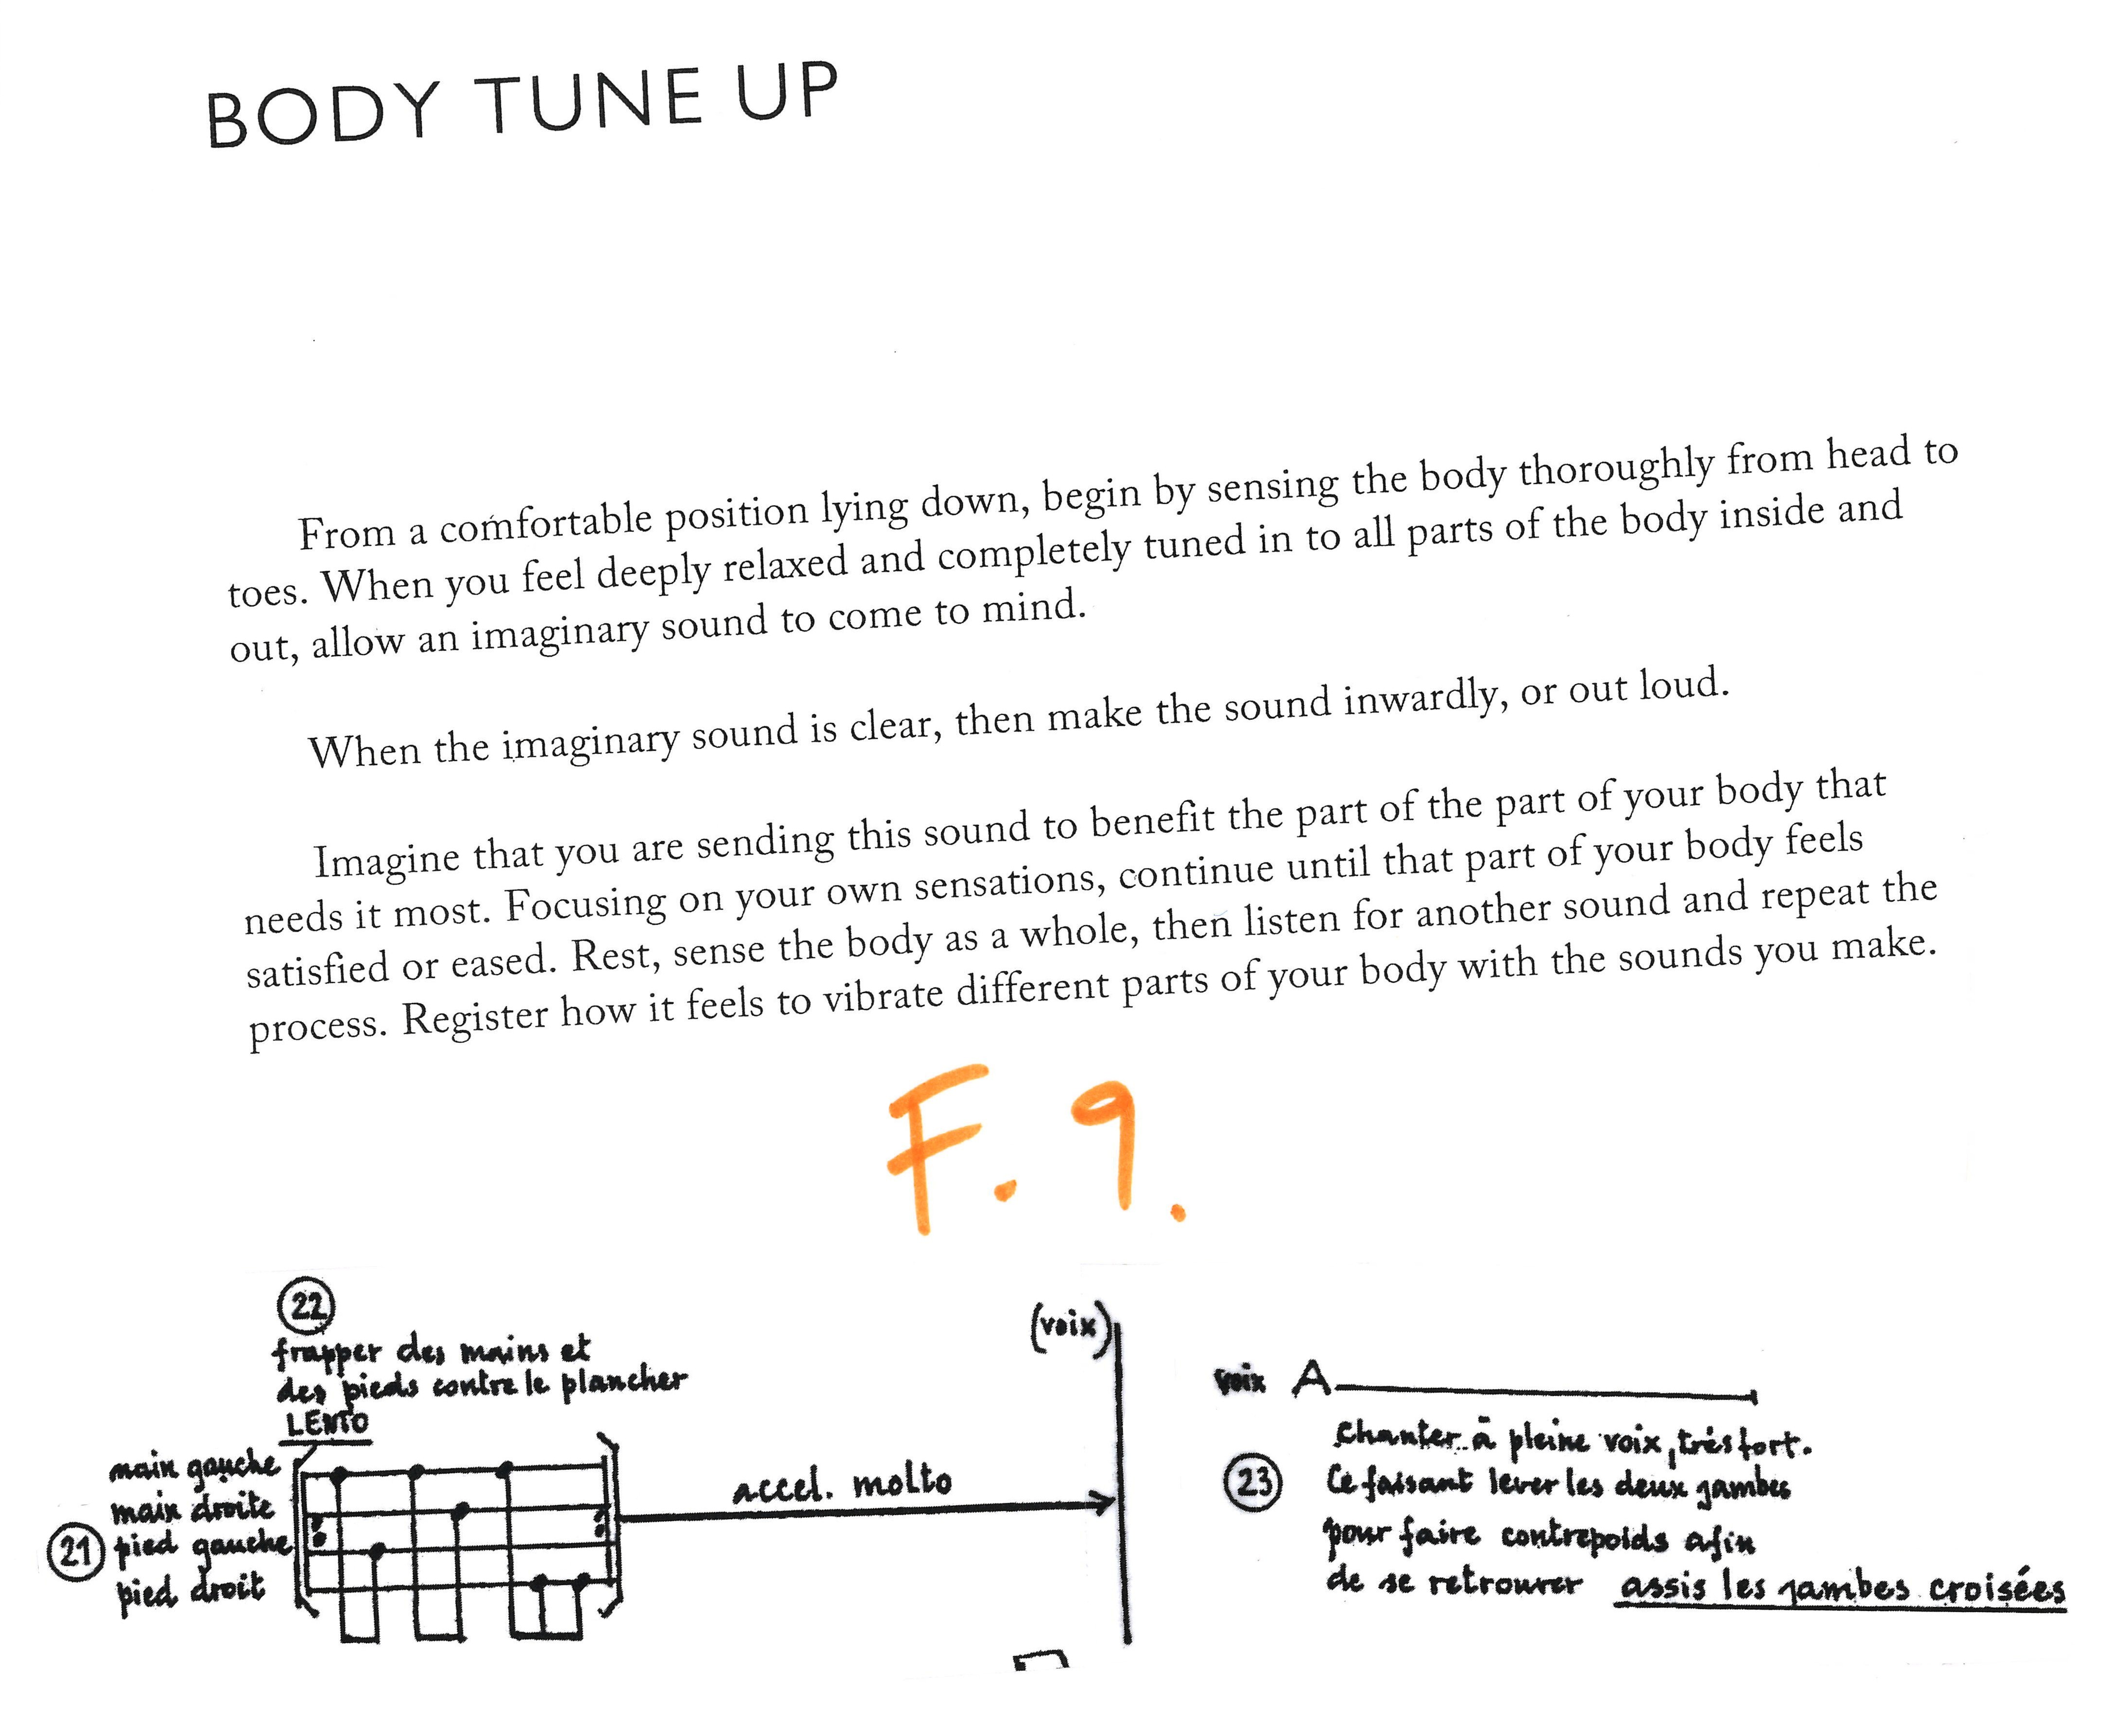 BODY TUNE UP
From a comfortable position lying down, begin by sensing the body thoroughly from head to
toes. When you feel deeply relaxed and completely tuned in to all parts of the body inside and
out, allow an imaginary sound to come to mind.
When the imaginary sound is clear, then make the sound inwardly, or out loud.
Imagine that you are sending this sound to benefit the part of the part of your body that
needs it most. Focusing on your own sensations, continue until that part of your body feels
satisfied or eased. Rest, sense the body as a whole, then listen for another sound and repeat the
process. Register how it feels to vibrate different parts of your body with the sounds you make.
F. 9.
22
frapper des mains et
des pieds contre le plancher
LENTO
main gauche
main droite
21 pied gauche
pied droit
accel. molto
(voix)
voix A
chanter à pleine voix, très fort.
23 Ce faisant lever les deux jambes
pour faire contrepoids afin
de se retrouver assis les jambes croisées